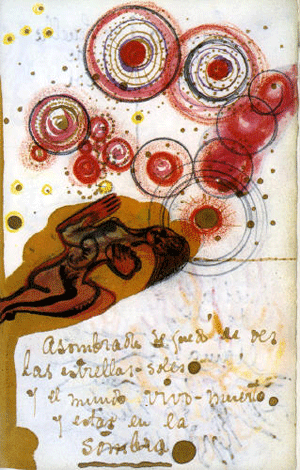 Asombrada Se quedó de ver
las estrellas-soles
y el mundo vivo-muerto
y estar en la
Sombra